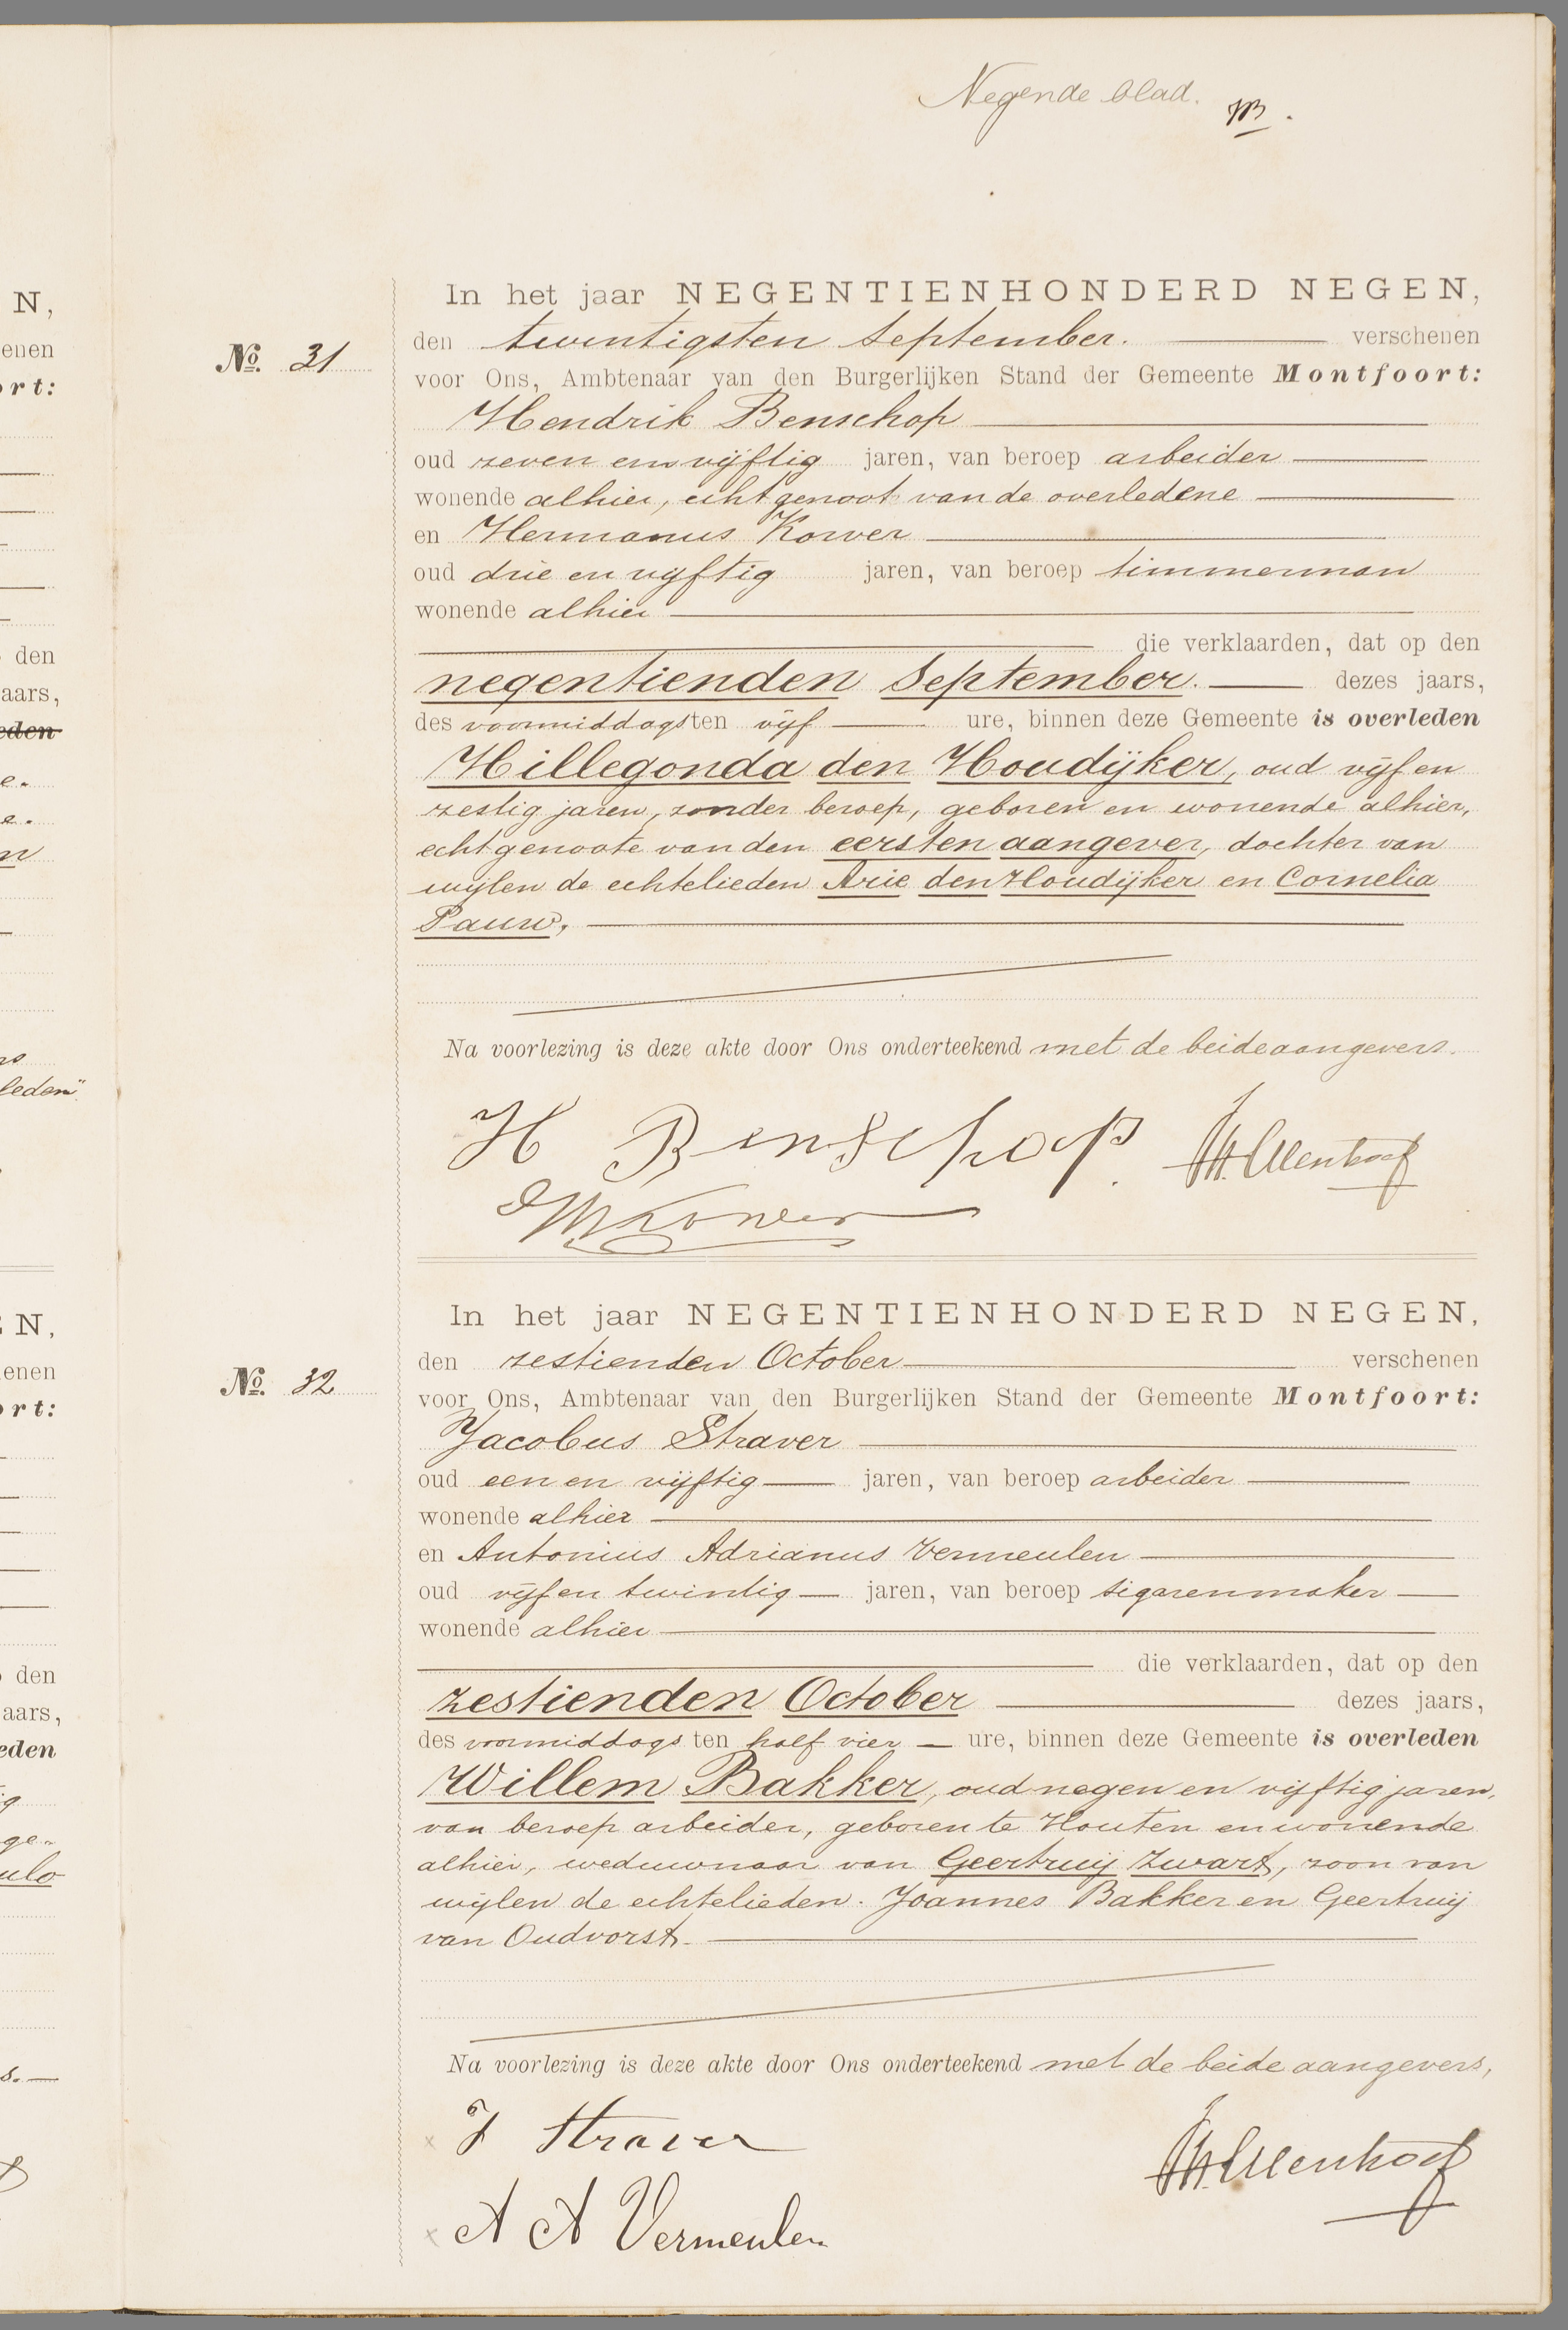 Negende blad.
In het jaar NEGENTIENHONDERD NEGEN,
No. 31
den twintigsten September. verschenen
voor Ons, Ambtenaar van den Burgerlijken Stand der Gemeente Montfoort:
Hendrik Benschop
oud zeven en vijftig jaren, van beroep arbeider
wonende alhier, echtgenoot van de overledene
en Hermanus Korver
oud drie en vijftig jaren, van beroep timmerman
wonende alhier
die verklaarden, dat op den
negentienden September. dezes jaars,
des voormiddags ten vijf ure, binnen deze Gemeente is overleden
Hillegonda den Houdijker, oud vijf en
zestig jaren, zonder beroep, geboren en wonende alhier,
echtgenoote van den eersten aangever, dochter van
wijlen de echtelieden Arie den Houdijker en Cornelia
Pauw,
Na voorlezing is deze akte door Ons onderteekend met de beide aangevers.
H Benschop
Korver
In het jaar NEGENTIENHONDERD NEGEN,
No. 32
den zestienden October verschenen
voor Ons, Ambtenaar van den Burgerlijken Stand der Gemeente Montfoort:
Jacobus Straver
oud een en vijftig jaren, van beroep arbeider
wonende alhier
en Antonius Adrianus Vermeulen
oud vijf en twintig jaren, van beroep sigarenmaker
wonende alhier
die verklaarden, dat op den
zestienden October dezes jaars,
des voormiddags ten half vier ure, binnen deze Gemeente is overleden
Willem Bakker, oud negen en vijftig jaren,
van beroep arbeider, geboren te Houten en wonende
alhier, weduwnaar van Geertruij Zwart, zoon van
wijlen de echtelieden. Joannes Bakker en Geertruij
van Oudvorst.
Na voorlezing is deze akte door Ons onderteekend met de beide aangevers,
J Straver
A A Vermeulen